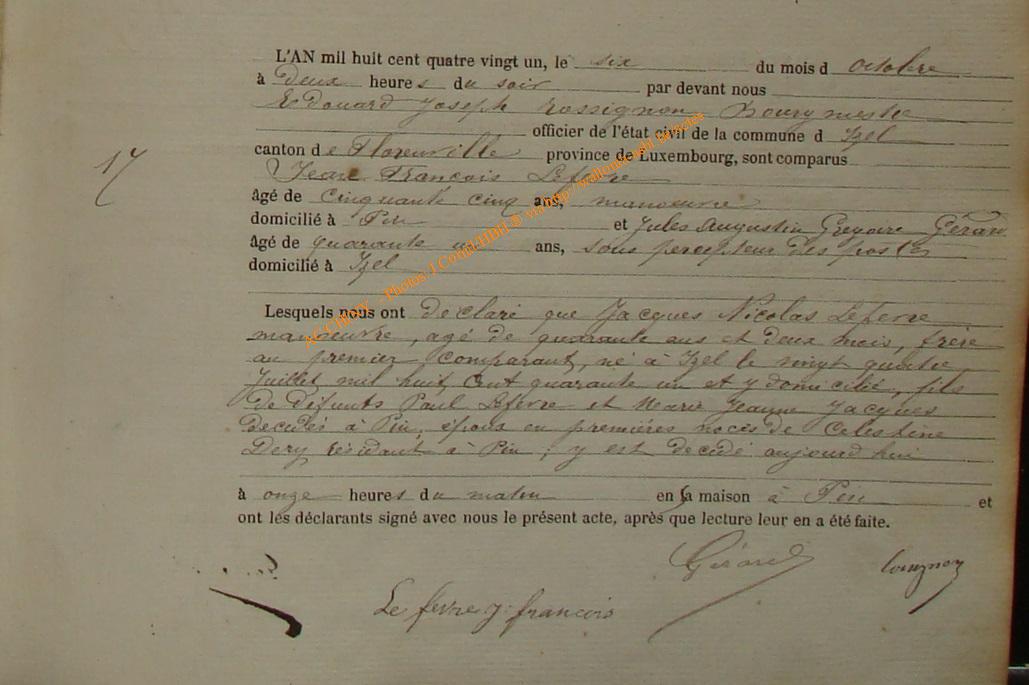 L'AN mil huit cent quatre vingt un, le six du mois d octobre
à Deux heures du soir par devant nous
Edouard Joseph Rossignon Bourgmestre
officier de l'état civil de la commune d Izel
canton de Florenville province de Luxembourg, sont comparus
Jean François Lefevre
âgé de cinquante cinq ans, manoeuvre
domicilié à Pin et Jules Augustin Gregoire Gérard
âgé de quarante un ans, sous percepteur des postes
domicilié à Izel
Lesquels nous ont déclaré que Jacques Nicolas Lefevre
manoeuvre, agé de quarante ans et deux mois, frère
au premier comparant, né à Izel le vingt quatre
Juillet mil huit cent quarante un et y domicilié, fils
de défunts Paul Lefevre et Marie Jeanne Jacques
décédés à Pin, époux en premières noces de Celestine
Dery résidant à Pin ; y est décédé aujourd'hui
à onze heures du matin en sa maison à Pin et
ont les déclarants signé avec nous le présent acte, après que lecture leur en a été faite.
17
AGCHIVY - Photos J Cornil-HIBH © via http://wallonica
Gérard
Le fevre j. francois